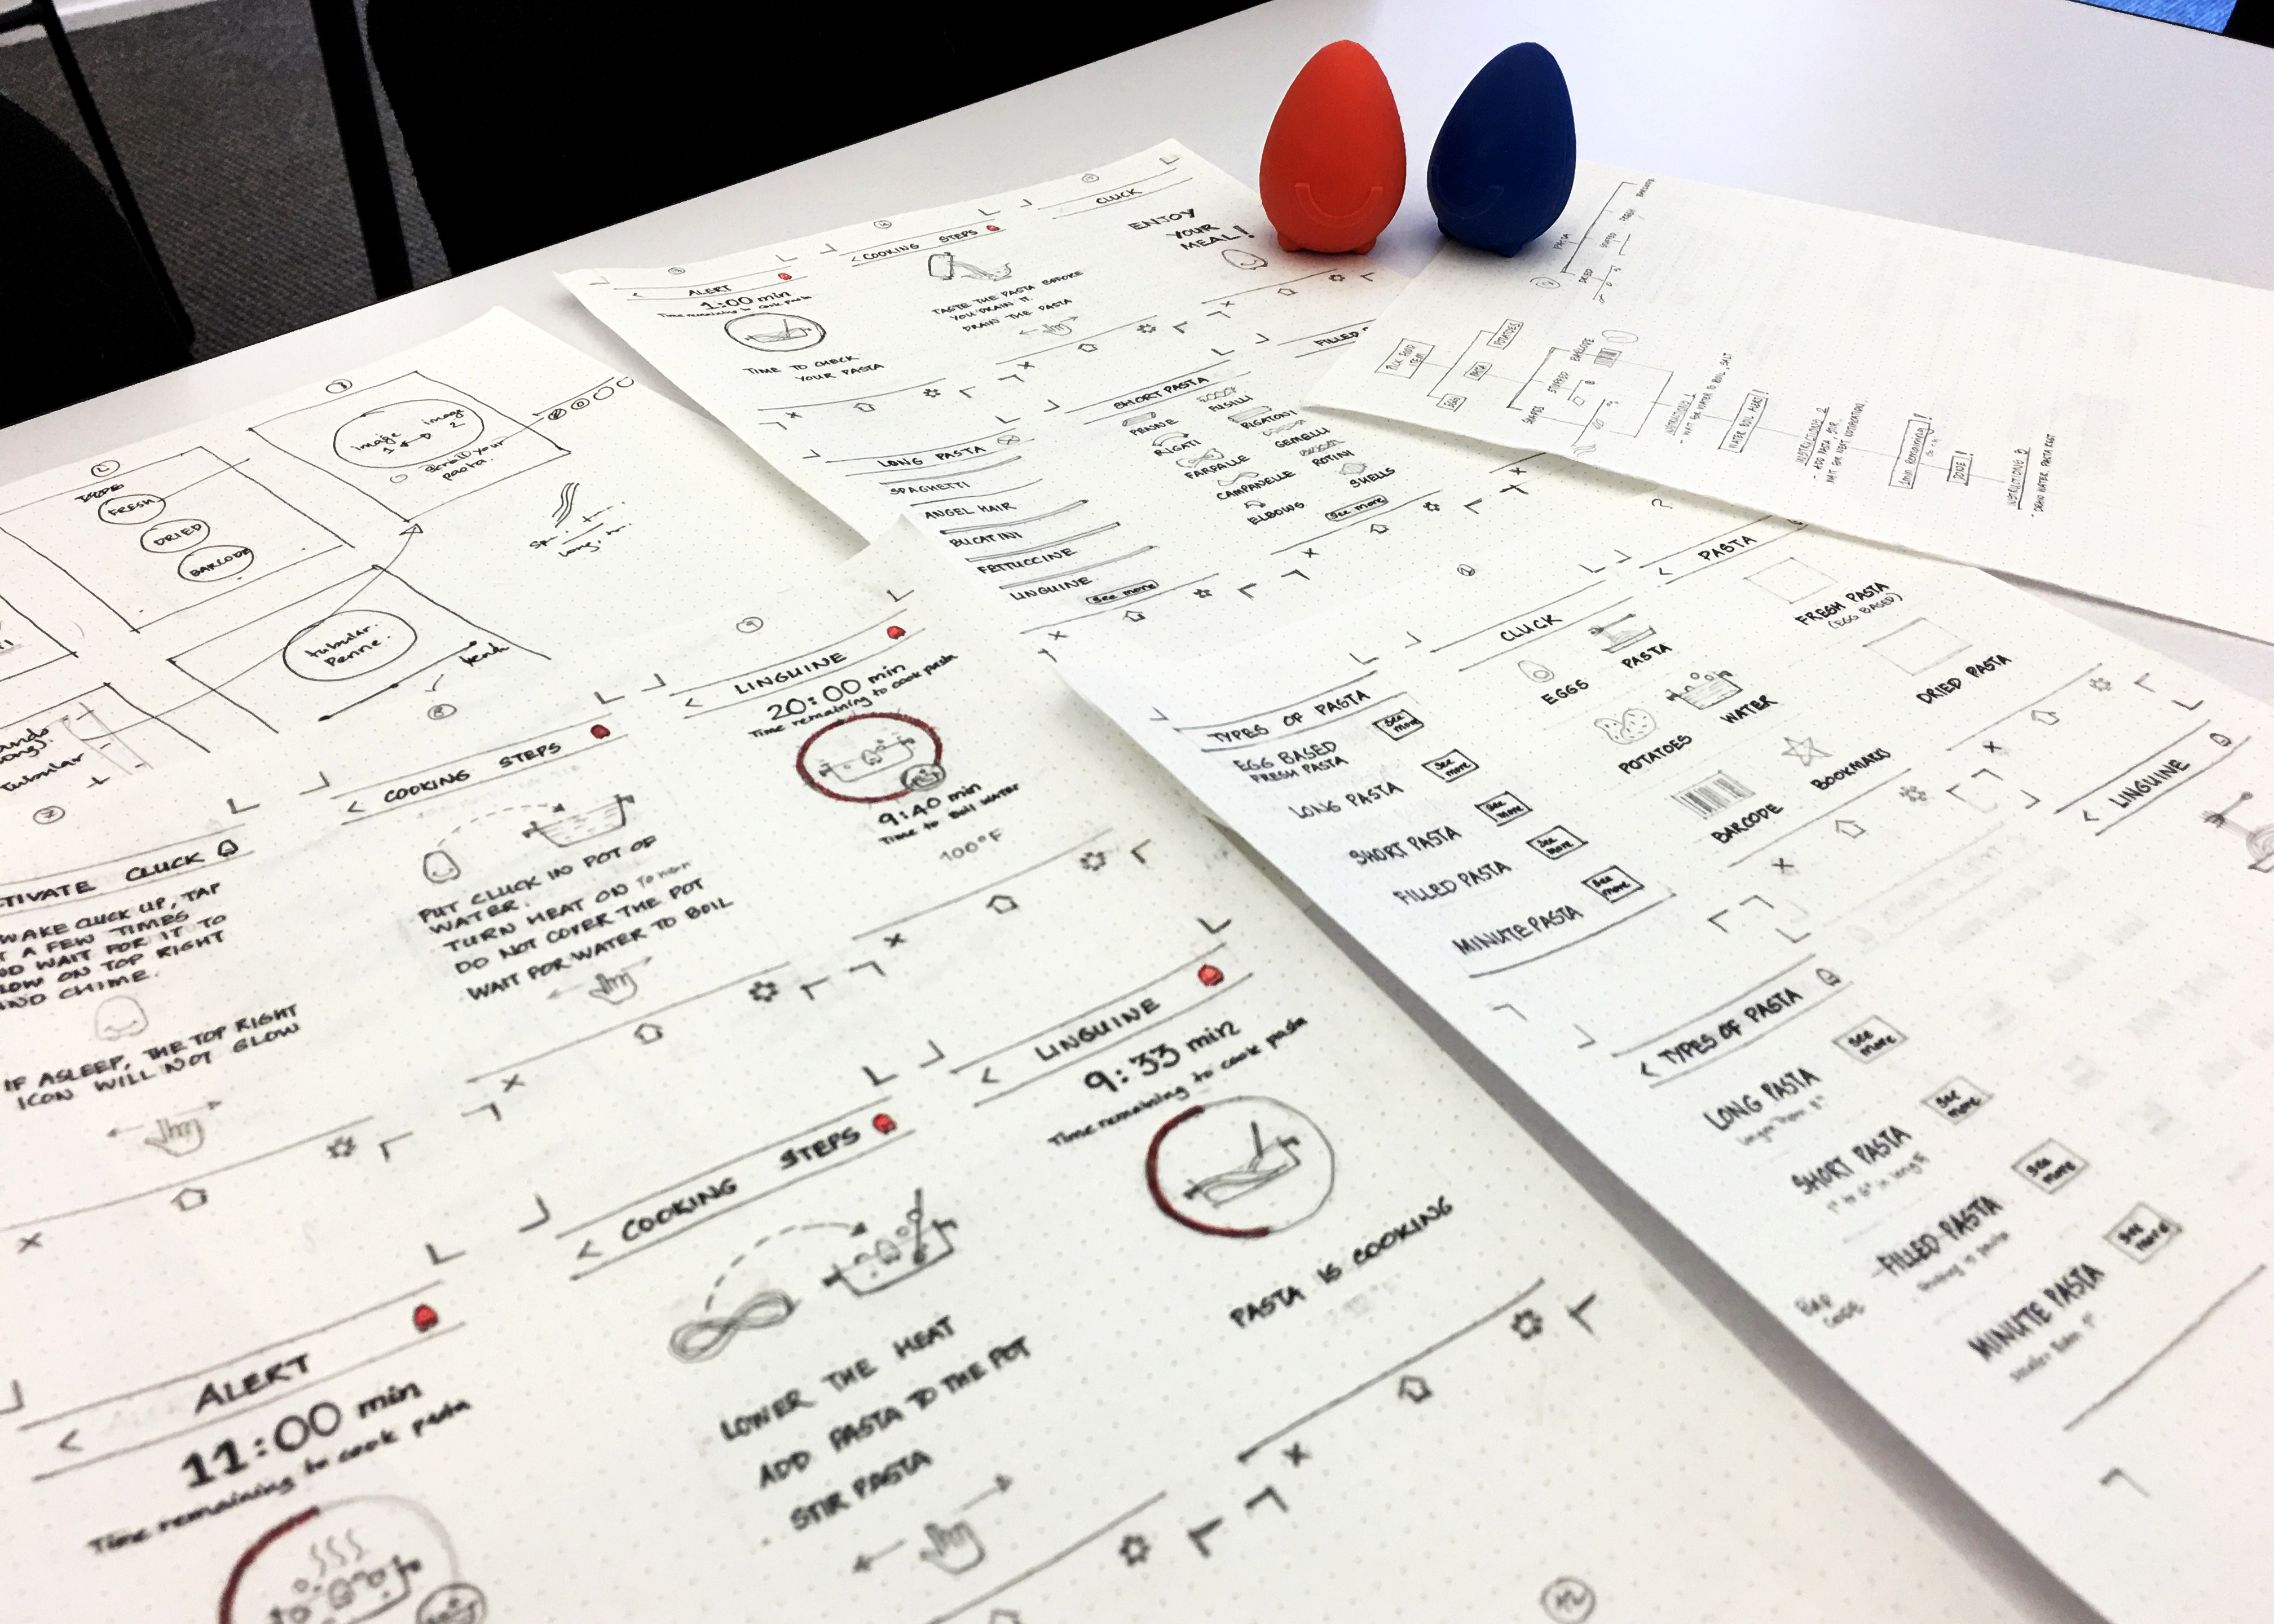 ALERT
1:00 min
Time remaining to cook pasta
TIME TO CHECK
YOUR PASTA
< COOKING STEPS
TASTE THE PASTA BEFORE
YOU DRAIN IT.
DRAIN THE PASTA
CLUCK
ENJOY
YOUR
MEAL!
LONG PASTA
SPAGHETTI
ANGEL HAIR
BUCATINI
FETTUCCINE
LINGUINE
See more
SHORT PASTA
PENNE
FUSILLI
RIGATI
RIGATONI
FARFALLE
GEMELLI
CAMPANELLE
ROTINI
ELBOWS
SHELLS
See more
FILLED
PASTA
DRIED
POTATOES
PASTA
EGG
BARCODE
WATER BOIL ALERT!
DONE!
TYPE
FRESH
DRIED
BARCODE
image
1
image
2
scroll your
pasta.
tubular.
Penne.
Tubular
TIVATE CLUCK
WAKE CLUCK UP, TAP
T A FEW TIMES
ND WAIT FOR IT TO
LOW ON TOP RIGHT
AND CHIME.
IF ASLEEP, THE TOP RIGHT
ICON WILL NOT GLOW
< COOKING STEPS
PUT CLUCK IN POT OF
WATER.
TURN HEAT ON TO HIGH
DO NOT COVER THE POT
WAIT FOR WATER TO BOIL
9
< LINGUINE
20:00 min
Time remaining to cook pasta
9:40 min
Time to boil water
100°F
< ALERT
11:00 min
Time remaining to cook pasta
< COOKING STEPS
LOWER THE HEAT
ADD PASTA TO THE POT
STIR PASTA
< LINGUINE
9:33 min
Time remaining to cook pasta
PASTA IS COOKING
12
TYPES OF PASTA
EGG BASED
FRESH PASTA
See more
LONG PASTA
See more
SHORT PASTA
See more
FILLED PASTA
See more
MINUTE PASTA
See more
CLUCK
EGGS
PASTA
POTATOES
WATER
BARCODE
BOOKMARKS
< PASTA
FRESH PASTA
(EGG BASED)
DRIED PASTA
< TYPES OF PASTA
LONG PASTA
See more
SHORT PASTA
1" to 6" in length
See more
FILLED PASTA
See more
MINUTE PASTA
See more
BAR
CODE
< LINGUINE